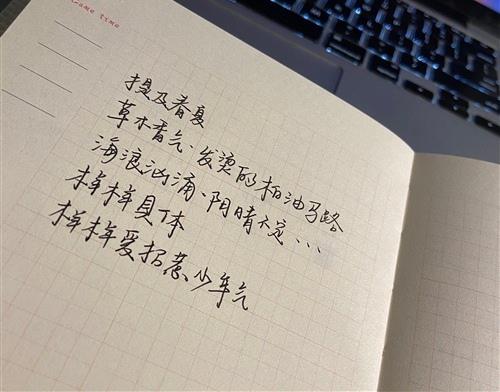 Game time
提及春夏
草木香气、发烫的柏油马路
海浪汹涌、阴晴不定...
样样具体
样样爱招惹少年气